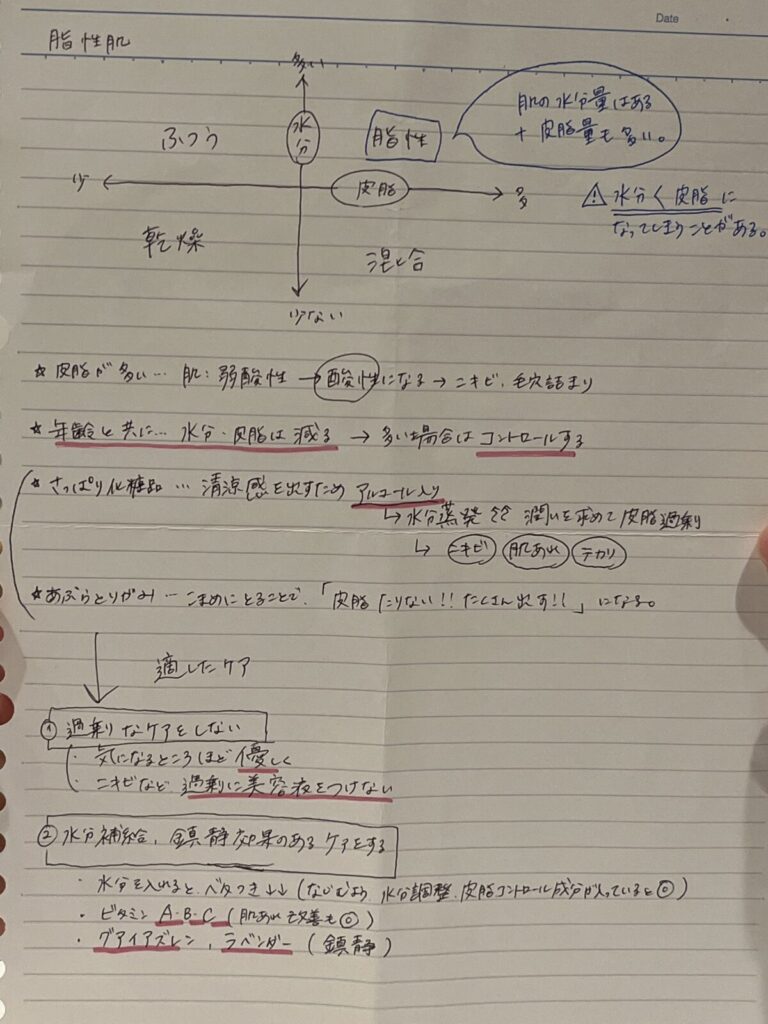 Date
脂性肌
多い
ふつう
水分
脂性
肌の水分量はある
+ 皮脂量も多い。
少
皮脂
多
⚠ 水分く皮脂に
なってしまうことがある。
乾燥
混合
少ない
☆ 皮脂が多い… 肌：弱酸性 → 酸性になる → ニキビ、毛穴詰まり
☆ 年齢と共に… 水分・皮脂は減る → 多い場合はコントロールする
☆ さっぱり化粧品 … 清涼感を出すため アルコール入り
↳ 水分蒸発 潤いを求めて皮脂過剰
↳ ニキビ 肌あれ テカリ
☆ あぶらとりがみ … こまめにとることで、「皮脂たりない!! たくさん出す!!」になる。
↓ 適したケア
① 過剰なケアをしない
・気になるところほど優しく
・ニキビなど過剰に美容液をつけない
② 水分補給、鎮静効果のあるケアをする
・水分を入れると、ベタつき↓↓ (なじむよう 水分調整、皮脂コントロール成分が入っていると◎)
・ビタミン A・B・C (肌あれ改善も◎)
・グアイアズレン、ラベンダー (鎮静)